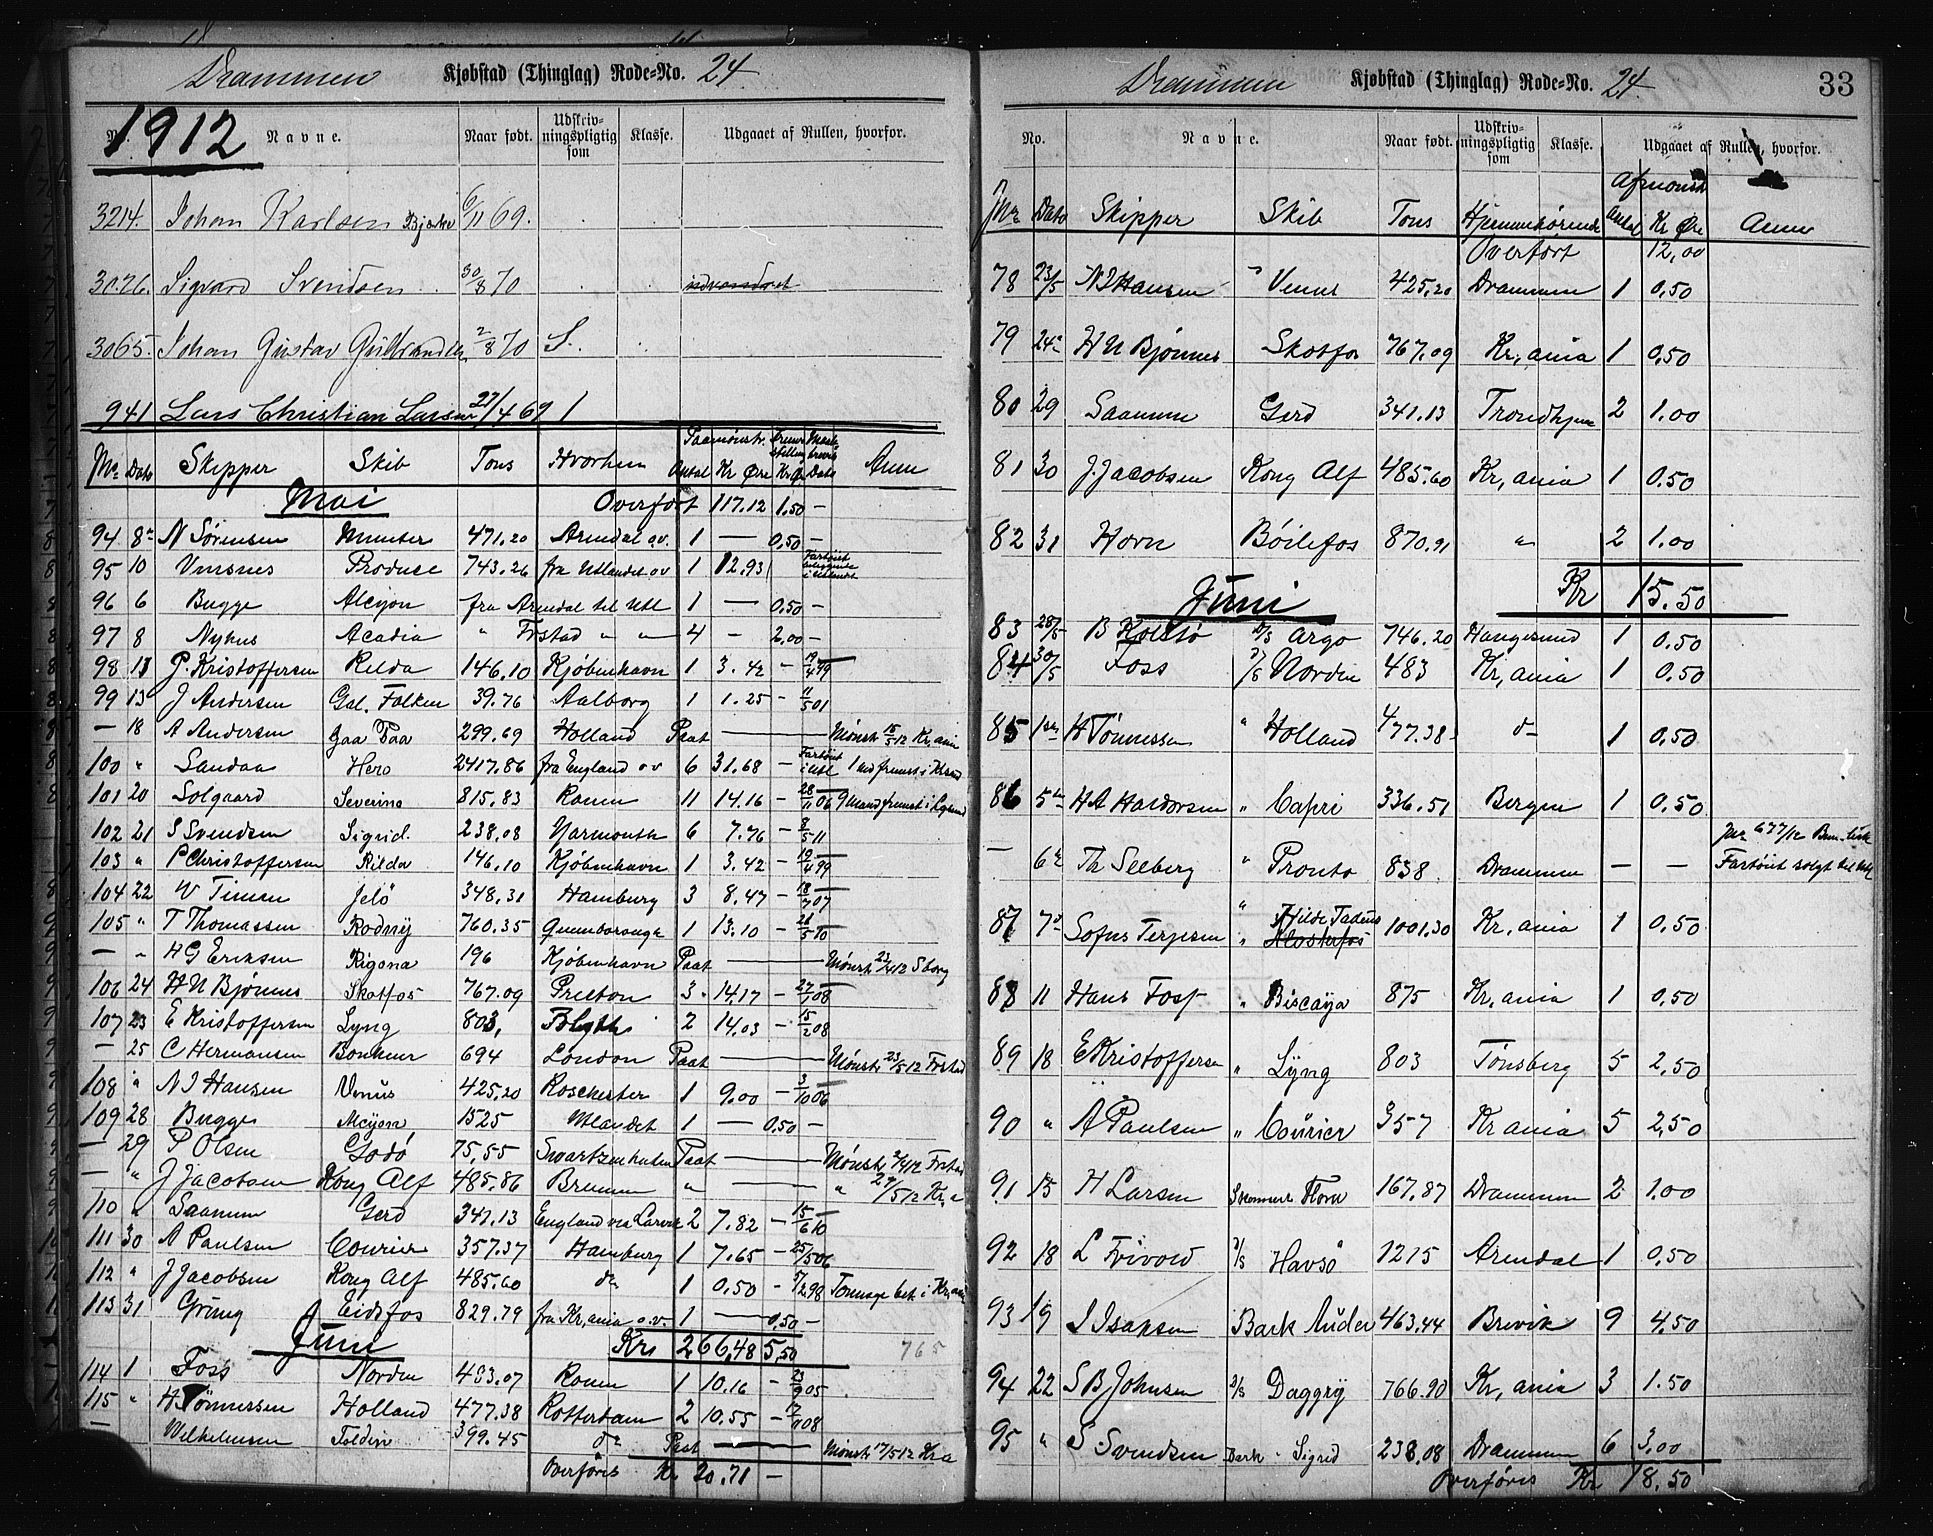 Drammen Kjøbstad (Thinglag) Rode=No. 24
1912
Navne. Naar født. Udskriv-ningspligtig som Klasse. Udgaaet af Rullen, hvorfor.
3214. Johan Karlsen Bjerke 6/11 69.
3076. Sigvard Svendsen 30/8 70 udvandret
3065. Johan Gustav Gulbrandsen 2/8 70 S.
941 Lars Christian Larsen 27/4 69 1
Nr Dato Skipper Skib Tons Hvorhen Paamønstr. Antal Kr Øre Kr Ø Dato Anm
Mai Overført 117.12 1.50 —
94 8 N Sørensen Munter 471.20 Arendal o.v. 1 — 0.50 —
95 10 Produce 743.26 fra Utlandet o v 1 12.93
96 6 Bugge Alcyon fra Arendal til Utl 1 — 0.50 —
97 8 Nyhus Acadia " Frstad " " 4 - 2.00 —
98 13 P. Kristoffersen Rilda 146.10 Kjøbenhavn 1 3.42 — 19/4 99
99 13 J Andersen Gal. Falken 39.76 Aalborg 1 1.25 — 11/5 01
— 18 A Andersen Gaa Paa 299.69 Holland Paat — Mønst 15/5 12 Kr,ania
100 " Sandaa Hero 2417.86 fra England o v 6 31.68 —
101 20 Solgaard Severina 815.83 Rouen 11 14.16 — 28/11 06
102 21 S Svendsen Sigrid. 238.08 Yarmouth 6 7.76 — 8/5 11
103 " P Christoffersen Rilda 146.10 Kjøbenhavn 1 3.42 — 19/4 99
104 22 W Timen Jelö 348.31 Hamburg 3 8.47 — 18/7 07
105 " T Thomassen Rodny 760.35 1 13.10 — 28/5 10
— " H G Eriksen Rigona 196 Kjøbenhavn Paat — Mønst. 23/4 12 Sborg
106 24 H N Bjønnes Skotfos 767.09 Preston 3 14.17 — 27/1 08
107 23 E Kristoffersen Lyng 803, Blyth 2 14.03 — 15/2 08
— 25 C Hermansen Bonheur 694 London Paat — Mønst. 23/5 12 Frstad
108 " N J Hansen Venus 425.20 Roschester 1 9.00 — 3/10 06
109 28 Bugge Alcyon 1525 Utlandet 1 — 0.50 —
— 29 P Olsen Godö 75,55 Paat — Mønst. 2/4 12 Frstad
— " J Jacobsen Kong Alf 485.86 Bremen " — " 27/5 12 Kr,a
110 " Saanum Gerd 341.13 England via Larvik 2 7.82 — 15/6 10
111 30 A Paulsen Courier 357.37 Hamburg 1 7.65 — 25/5 06
112 " J Jacobsen Kong Alf 485.60 do 1 0.50 — 5/2 98 Tonnage bet. i Kr,ania
113 31 Grung Eidsfos 829.79 fra Kr,ania o.v. 1 — 0.50 —
Juni Krs 266,48 5,50 765
114 1 Foss Norden 483.07 Rouen 1 10.16 — 23/9 05
115 " H Tønnessen Holland 477.38 Rotterdam 2 10.55 — 17/1 08
— Wilhelmsen Foldin 399.45 do Paat — Mønst. 17/5 12 Kra
Overføris Kr 20.71 —
Drammen Kjøbstad (Thinglag) Rode=No. 24. 33
No. Navne. Naar født. Udskriv-ningspligtig som Klasse. Udgaaet af Rullen, hvorfor.
Afmønst
Jnr Dato Skipper Skib Tons Hjemmehørende Antal Kr Øre Anm
Overført 12,00
78 23/5 N J Hansen " Venus 425.20 Drammen 1 0.50
79 24 H N Bjønnes Skotfos 767.09 Kr,ania 1 0.50
80 29 Saanum Gerd 341.13 Trondhjem 2 1.00
81 30 J. Jacobsen Kong Alf 485.60 Kr,ania 1 0.50
82 31 Horn Böilefos 870.91 " 2 1.00
Kr 15.50
Juni
83 28/5 B Kolstø D/S Argo 746.20 Haugesund 1 0.50
84 30/5 Foss D/S Norden 483 Kr,ania 1 0.50
85 1 H Tønnessen " Holland 477.38 do 1 0.50
86 5 H A Haldorsen " Capri 336.51 Bergen 1 0.50
Jnr 677/12
— 6 Th Seeberg " Pronto 838 Drammen — — Fartöiet solgt til Utl
" Hilde Tadeus
87 7 Sofus Terjesen " Klosterfos 1001.30 Kr,ania 1 0.50
88 11 Hans Foss " Biscaya 875 Kr,ania 1 0.50
89 18 E Kristoffersen " Lyng 803 Tønsberg 5 2.50
90 " A Paulsen " Courier 357 Kr ania 5 2.50
91 15 H Larsen Skonnert Flora 167.87 Drammen 2 1.00
92 18 L Frivold D/S Havsö 1215 Arendal 1 0.50
93 19 J Isaksen Bark Auder 463.44 Brevik 9 4.50
94 22 S B Johnsen D/S Daggry 766.90 Kr,ania 3 1.50
95 " S Svendsen Bark Sigrid 238.08 Drammen 6 3.00
Overføris Kr 18.50